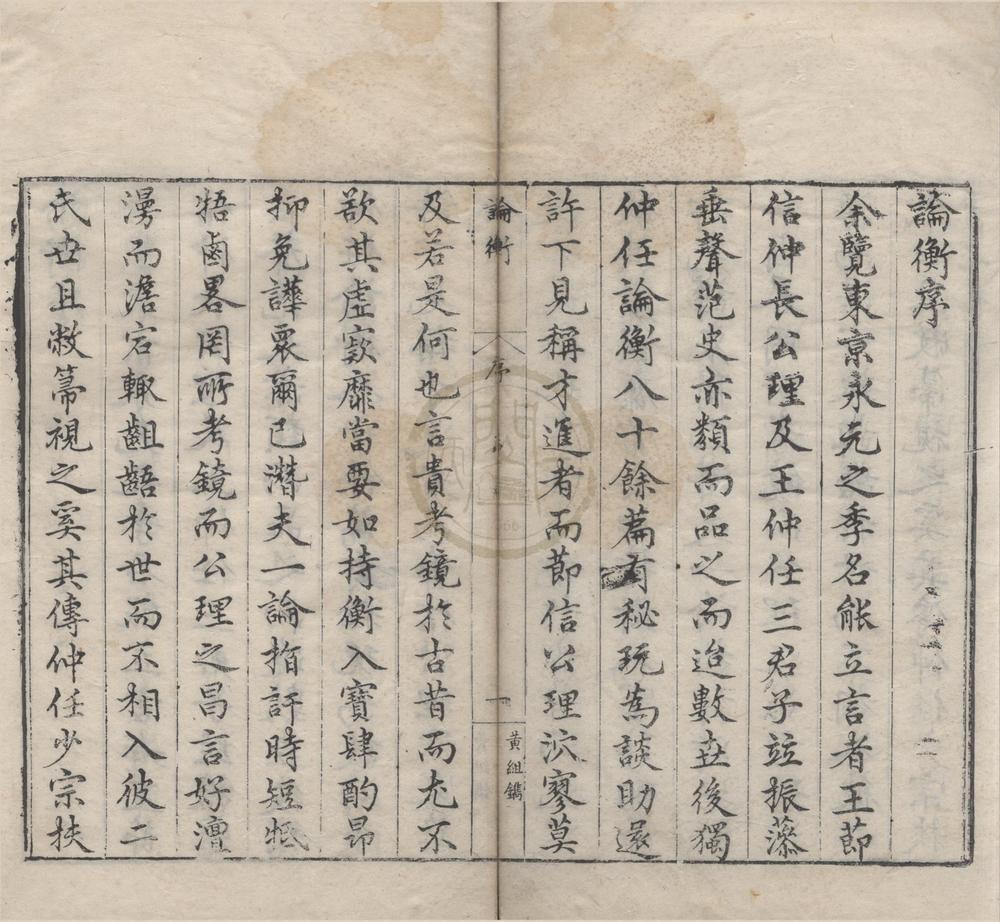 論衡序
余覽東京永元之季名能立言者王莭
信仲長公理及王仲任三君子竝振藻
垂聲范史亦類而品之而迨數世後獨
仲任論衡八十餘篇有秘玩為談助還
許下見稱才進者而莭信公理泬寥莫
論衡
序
一
黃組鐫
及若是何也言貴考鏡於古昔而尤不
欲其虛窾靡當要如持衡入寶肆酌昂
抑免譁衆爾已濳夫一論指訐時短牴
牾鹵畧罔所考鏡而公理之昌言好澶
漫而澹宕輙齟齬於世而不相入彼二
氏世且敝帚視之奚其傳仲任少宗扶